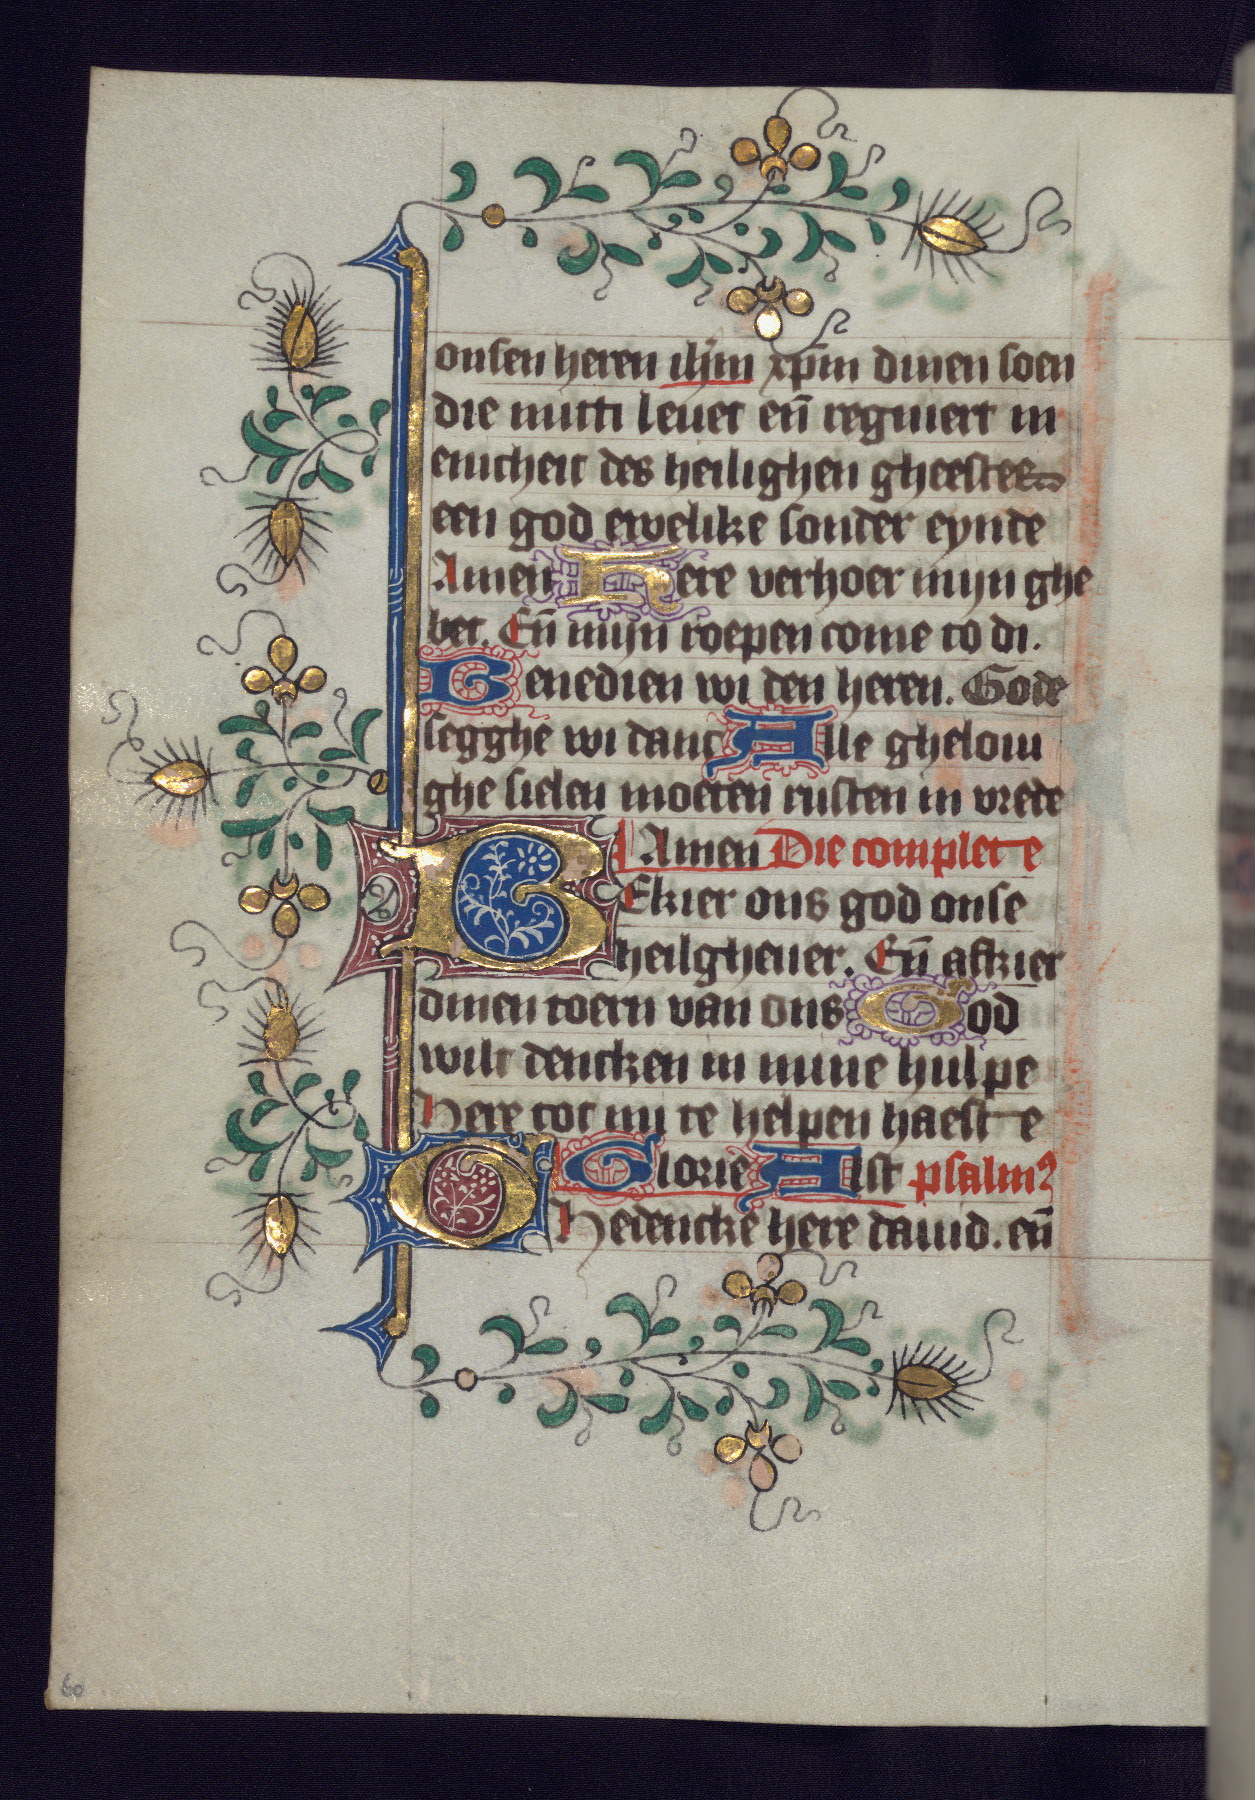 onsen heren ihm̄ xp̄m dinen soen
die mitti leuet en̄ regniert in
enicheit des heilighen gheestes
een god ewelike sonder eynde
Amen Here verhoer mijn ghe
bet. En̄ mijn roepen come to di.
Benedien wi den heren. Gode
segghe wi danc Alle gheloui
ghe sielen moeten rusten in vrede
Amen Die complete
BEkier ons god onse
heilgheuer. En̄ afkier
dinen toern van ons God
wilt dencken in mine hulpe
Here tot mi te helpen haeste
Glorie Alst psalmꝰ
GHedencke here dauid. en̄
60